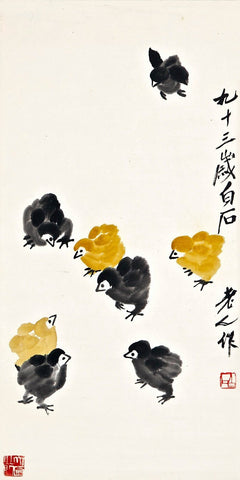 九十三歲白石
老人作